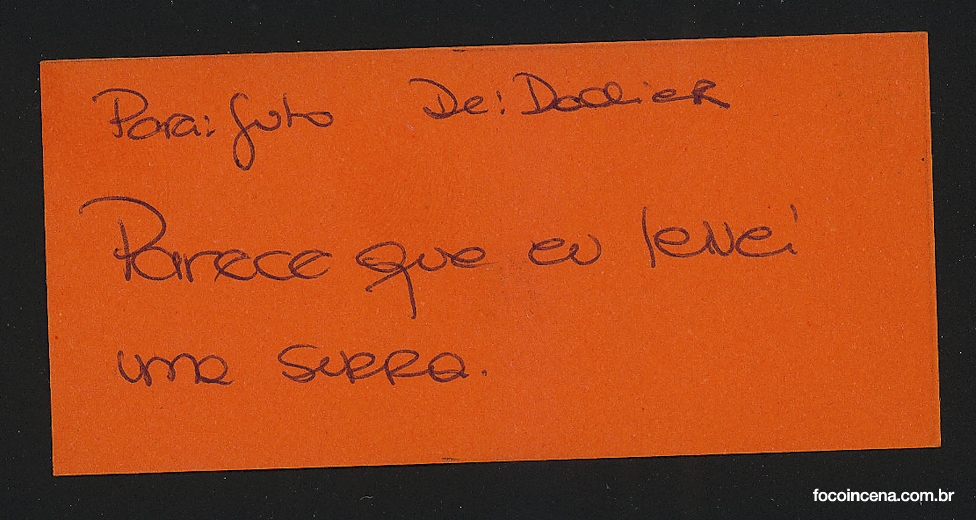 Para: Guto De: Dollier
Parece que eu levei
uma surra.
focoincena.com.br